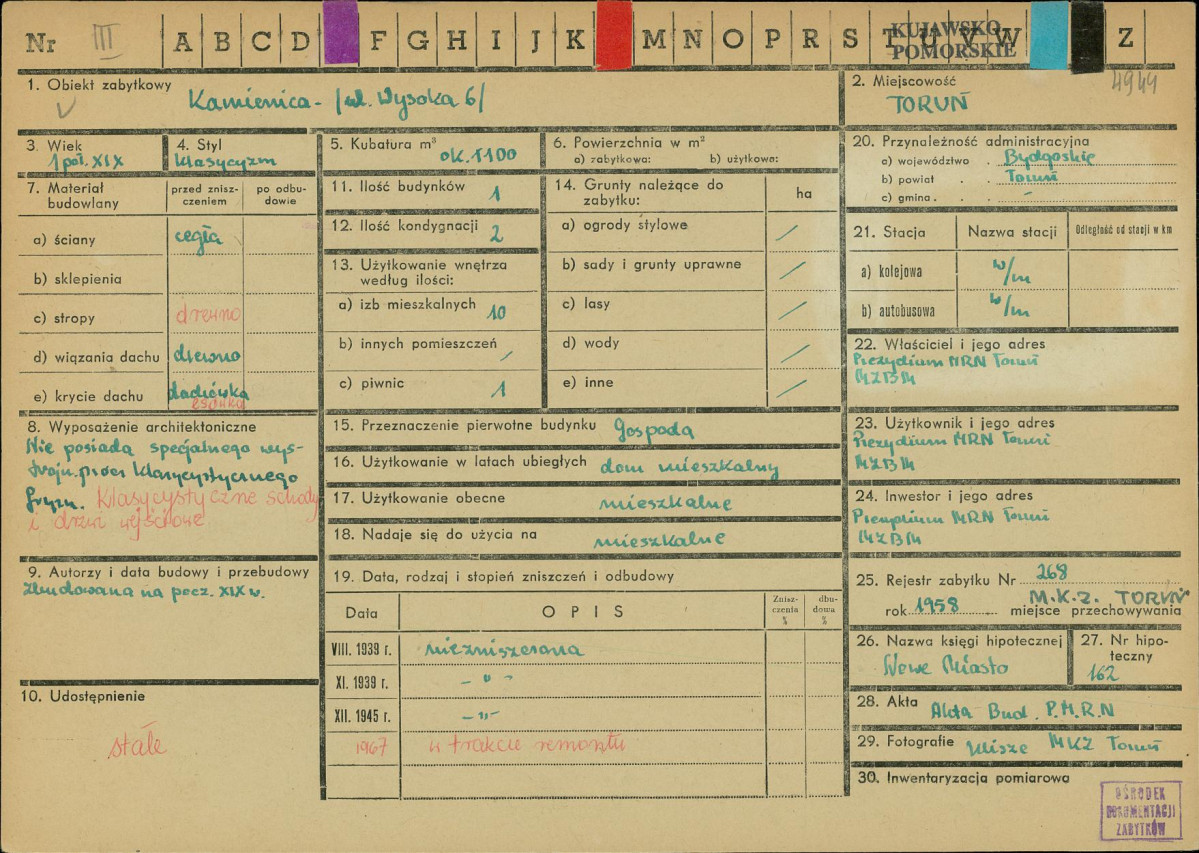 Nr III A B C D F G H I J K M N O P R S T U V W Z
KUJAWSKO
POMORSKIE
4944
1. Obiekt zabytkowy
Kamienica - /ul. Wysoka 6/
2. Miejscowość
TORUŃ
3. Wiek
1 poł. XIX
4. Styl
klasycyzm
5. Kubatura m³
ok. 1100
6. Powierzchnia w m²
a) zabytkowa: b) użytkowa:
7. Materiał budowlany
przed zniszczeniem
po odbudowie
a) ściany cegła
b) sklepienia
c) stropy drewno
d) wiązania dachu drewno
e) krycie dachu dachówka
8. Wyposażenie architektoniczne
Nie posiada specjalnego wys-
troju prócz klasycystycznego
fryzu. Klasycystyczne schody
i drzwi wejściowe
9. Autorzy i data budowy i przebudowy
Zbudowana na pocz. XIX w.
10. Udostępnienie
stałe
11. Ilość budynków 1
12. Ilość kondygnacji 2
13. Użytkowanie wnętrza
według ilości:
a) izb mieszkalnych 10
b) innych pomieszczeń /
c) piwnic 1
14. Grunty należące do
zabytku:
ha
a) ogrody stylowe /
b) sady i grunty uprawne /
c) lasy /
d) wody /
e) inne /
15. Przeznaczenie pierwotne budynku Gospoda
16. Użytkowanie w latach ubiegłych dom mieszkalny
17. Użytkowanie obecne mieszkalne
18. Nadaje się do użycia na mieszkalne
19. Data, rodzaj i stopień zniszczeń i odbudowy
Data OPIS Znisz-czenia % dbu-dowa %
VIII. 1939 r. niezniszczona
XI. 1939 r. - " -
XII. 1945 r. - " -
1967 w trakcie remontu
20. Przynależność administracyjna
a) województwo . Bydgoskie
b) powiat . . Toruń
c) gmina . . . -
21. Stacja Nazwa stacji Odległość od stacji w km
a) kolejowa w/m
b) autobusowa w/m
22. Właściciel i jego adres
Prezydium MRN Toruń
MZBM
23. Użytkownik i jego adres
Prezydium MRN Toruń
MZBM
24. Inwestor i jego adres
Prezydium MRN Toruń
MZBM
25. Rejestr zabytku Nr 268
rok 1958 miejsce przechowywania
M.K.Z. TORUŃ
26. Nazwa księgi hipotecznej
Nowe Miasto
27. Nr hipo-
teczny
162
28. Akta Akta Bud. P.M.R.N
29. Fotografie klisze MKZ Toruń
30. Inwentaryzacja pomiarowa
OŚRODEK
DOKUMENTACJI
ZABYTKÓW